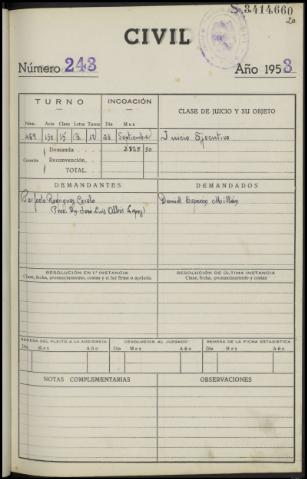 S.3.414.660
20
CIVIL
Número 243 Año 1953
TURNO INCOACIÓN CLASE DE JUICIO Y SU OBJETO
Núm. Acto Clase Letra Turno Día Mes
Septiembre Juicio Ejecutivo
Demanda 50
Cuantía Reconvención
TOTAL
DEMANDANTES DEMANDADOS
Rodríguez
(Proc. José Luis Daniel
RESOLUCIÓN EN 1.ª INSTANCIA RESOLUCIÓN DE ÚLTIMA INSTANCIA
Clase, fecha, pronunciamiento, costas y si fué firme o apelada Clase, fecha, pronunciamiento y costas
REMESA DEL PLEITO A LA AUDIENCIA DEVOLUCIÓN AL JUZGADO REMESA DE LA FICHA ESTADÍSTICA
Día Mes Año Día Mes Año Día Mes Año
NOTAS COMPLEMENTARIAS OBSERVACIONES